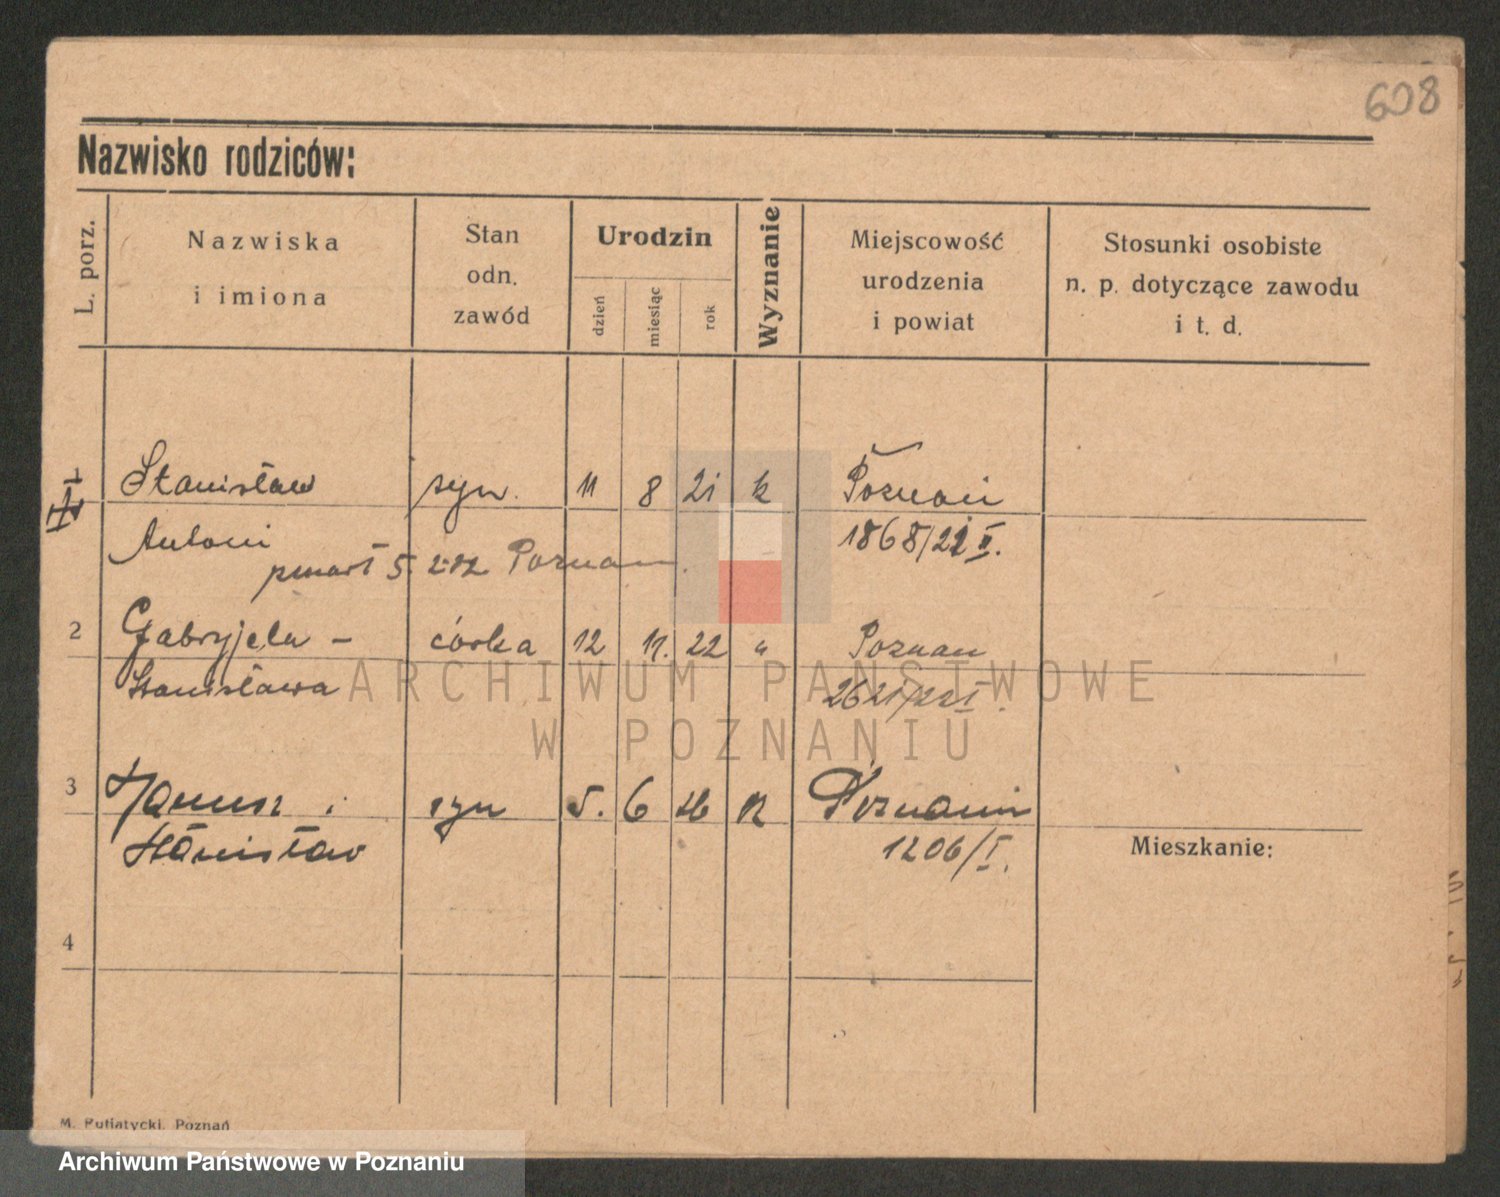 608
Nazwisko rodziców:
L. porz.
Nazwiska
i imiona
Stan
odn.
zawód
Urodzin
dzień
miesiąc
rok
Wyznanie
Miejscowość
urodzenia
i powiat
Stosunki osobiste
n. p. dotyczące zawodu
i t. d.
1 Stanisław syn. 11 8 21 k Poznań
Antoni 1868/21 II.
zmarł 5 2 22 Poznań.
2 Gabryjela – córka 12 11. 22 " Poznań
Stanisława 2621/22 I.
3 Janusz i syn 5. 6 26 k Poznań
Stanisław 1206/I.
Mieszkanie:
4
M. Putiatycki, Poznań
ARCHIWUM PAŃSTWOWE
W POZNANIU
Archiwum Państwowe w Poznaniu